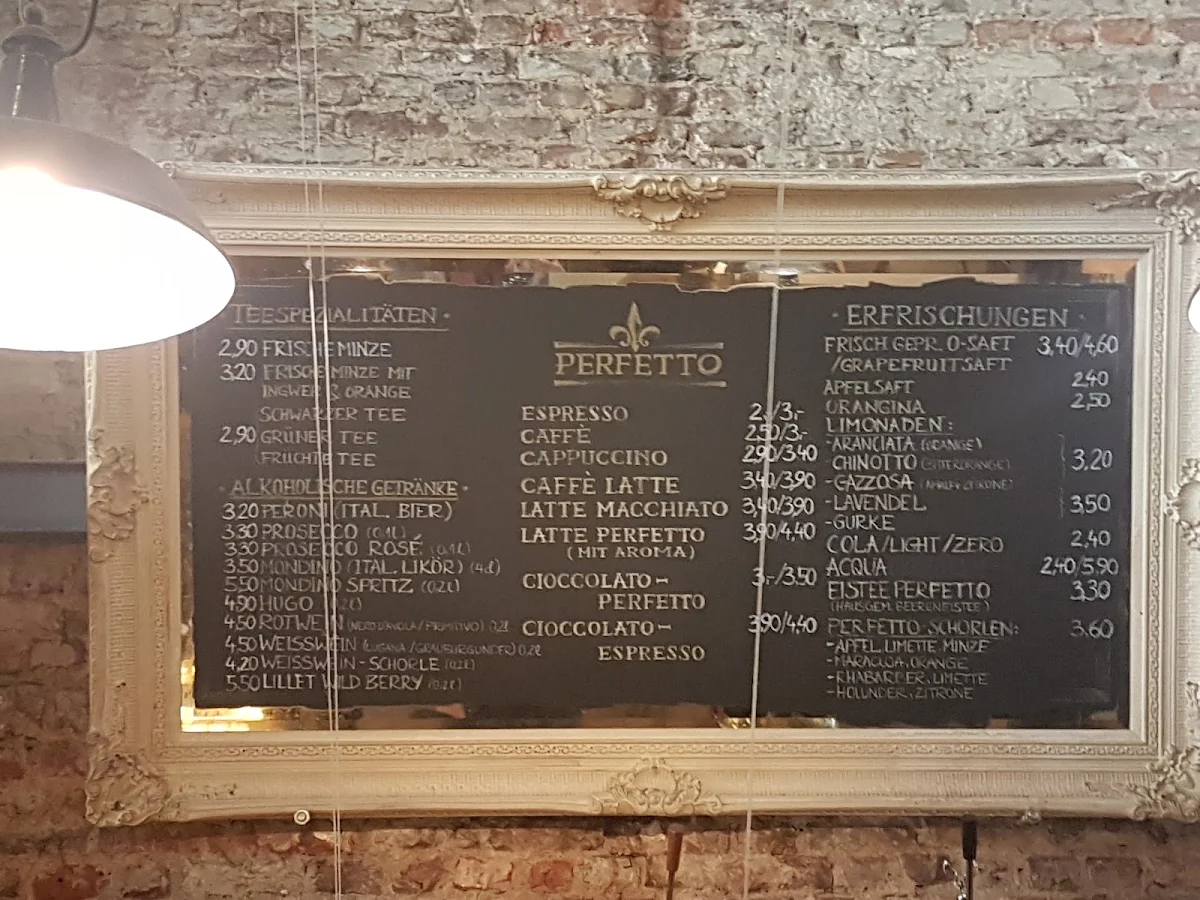 TEESPEZIALITÄTEN ·
2,90 FRISCHE MINZE
3,20 FRISCHE MINZE MIT
INGWER & ORANGE
SCHWARZER TEE
2,90 GRÜNER TEE
FRÜCHTETEE
· ALKOHOLISCHE GETRÄNKE ·
3,20 PERONI (ITAL. BIER)
3,30 PROSECCO (0,1L)
3,30 PROSECCO ROSÉ (0,1L)
3,50 MONDINO (ITAL. LIKÖR) (4cl)
5,50 MONDINO SPRITZ (0,2L)
4,90 HUGO (0,2L)
4,50 ROTWEIN (NERO D'AVOLA/PRIMITIVO) 0,2L
4,50 WEISSWEIN (LUGANA/GRAUBURGUNDER) 0,2L
4,20 WEISSWEIN-SCHORLE (0,2L)
5,50 LILLET WILD BERRY (0,2L)
PERFETTO
ESPRESSO 2,-/3,-
CAFFÈ 2,50/3,-
CAPPUCCINO 2,90/3,40
CAFFÈ LATTE 3,40/3,90
LATTE MACCHIATO 3,40/3,90
LATTE PERFETTO 3,90/4,40
(MIT AROMA)
CIOCCOLATO- 3,-/3,50
PERFETTO
CIOCCOLATO- 3,90/4,40
ESPRESSO
· ERFRISCHUNGEN ·
FRISCH GEPR. O-SAFT 3,40/4,60
/GRAPEFRUITSAFT
APFELSAFT 2,40
ORANGINA 2,50
LIMONADEN:
-ARANCIATA (ORANGE)
-CHINOTTO (BITTERORANGE) 3,20
-GAZZOSA (AMALFI-ZITRONE)
-LAVENDEL 3,50
-GURKE
COLA/LIGHT/ZERO 2,40
ACQUA 2,40/5,90
EISTEE PERFETTO 3,30
(HAUSGEM. BEERENEISTEE)
PERFETTO-SCHORLEN: 3,60
-APFEL, LIMETTE, MINZE
-MARACUJA, ORANGE
-RHABARBER, LIMETTE
-HOLUNDER, ZITRONE